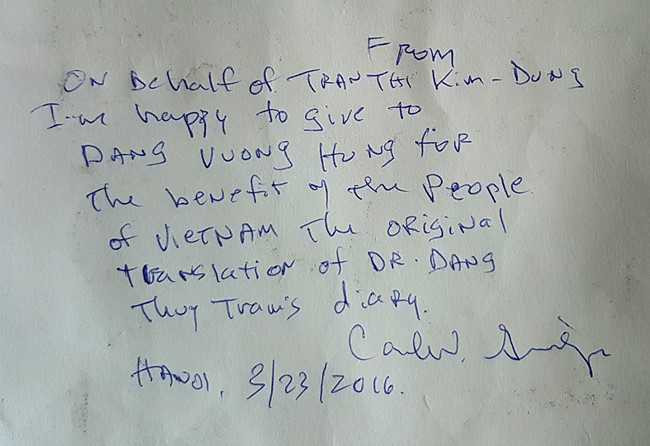 FROM
ON Behalf of TRAN THI Kim-DUNG
I-am happy to give to
DANG VUONG HUNG for
the benefit of the People
of VIETNAM The ORIGINAL
translation of DR. DANG
Thuy Tram's diary.
HANOI, 3/23/2016.